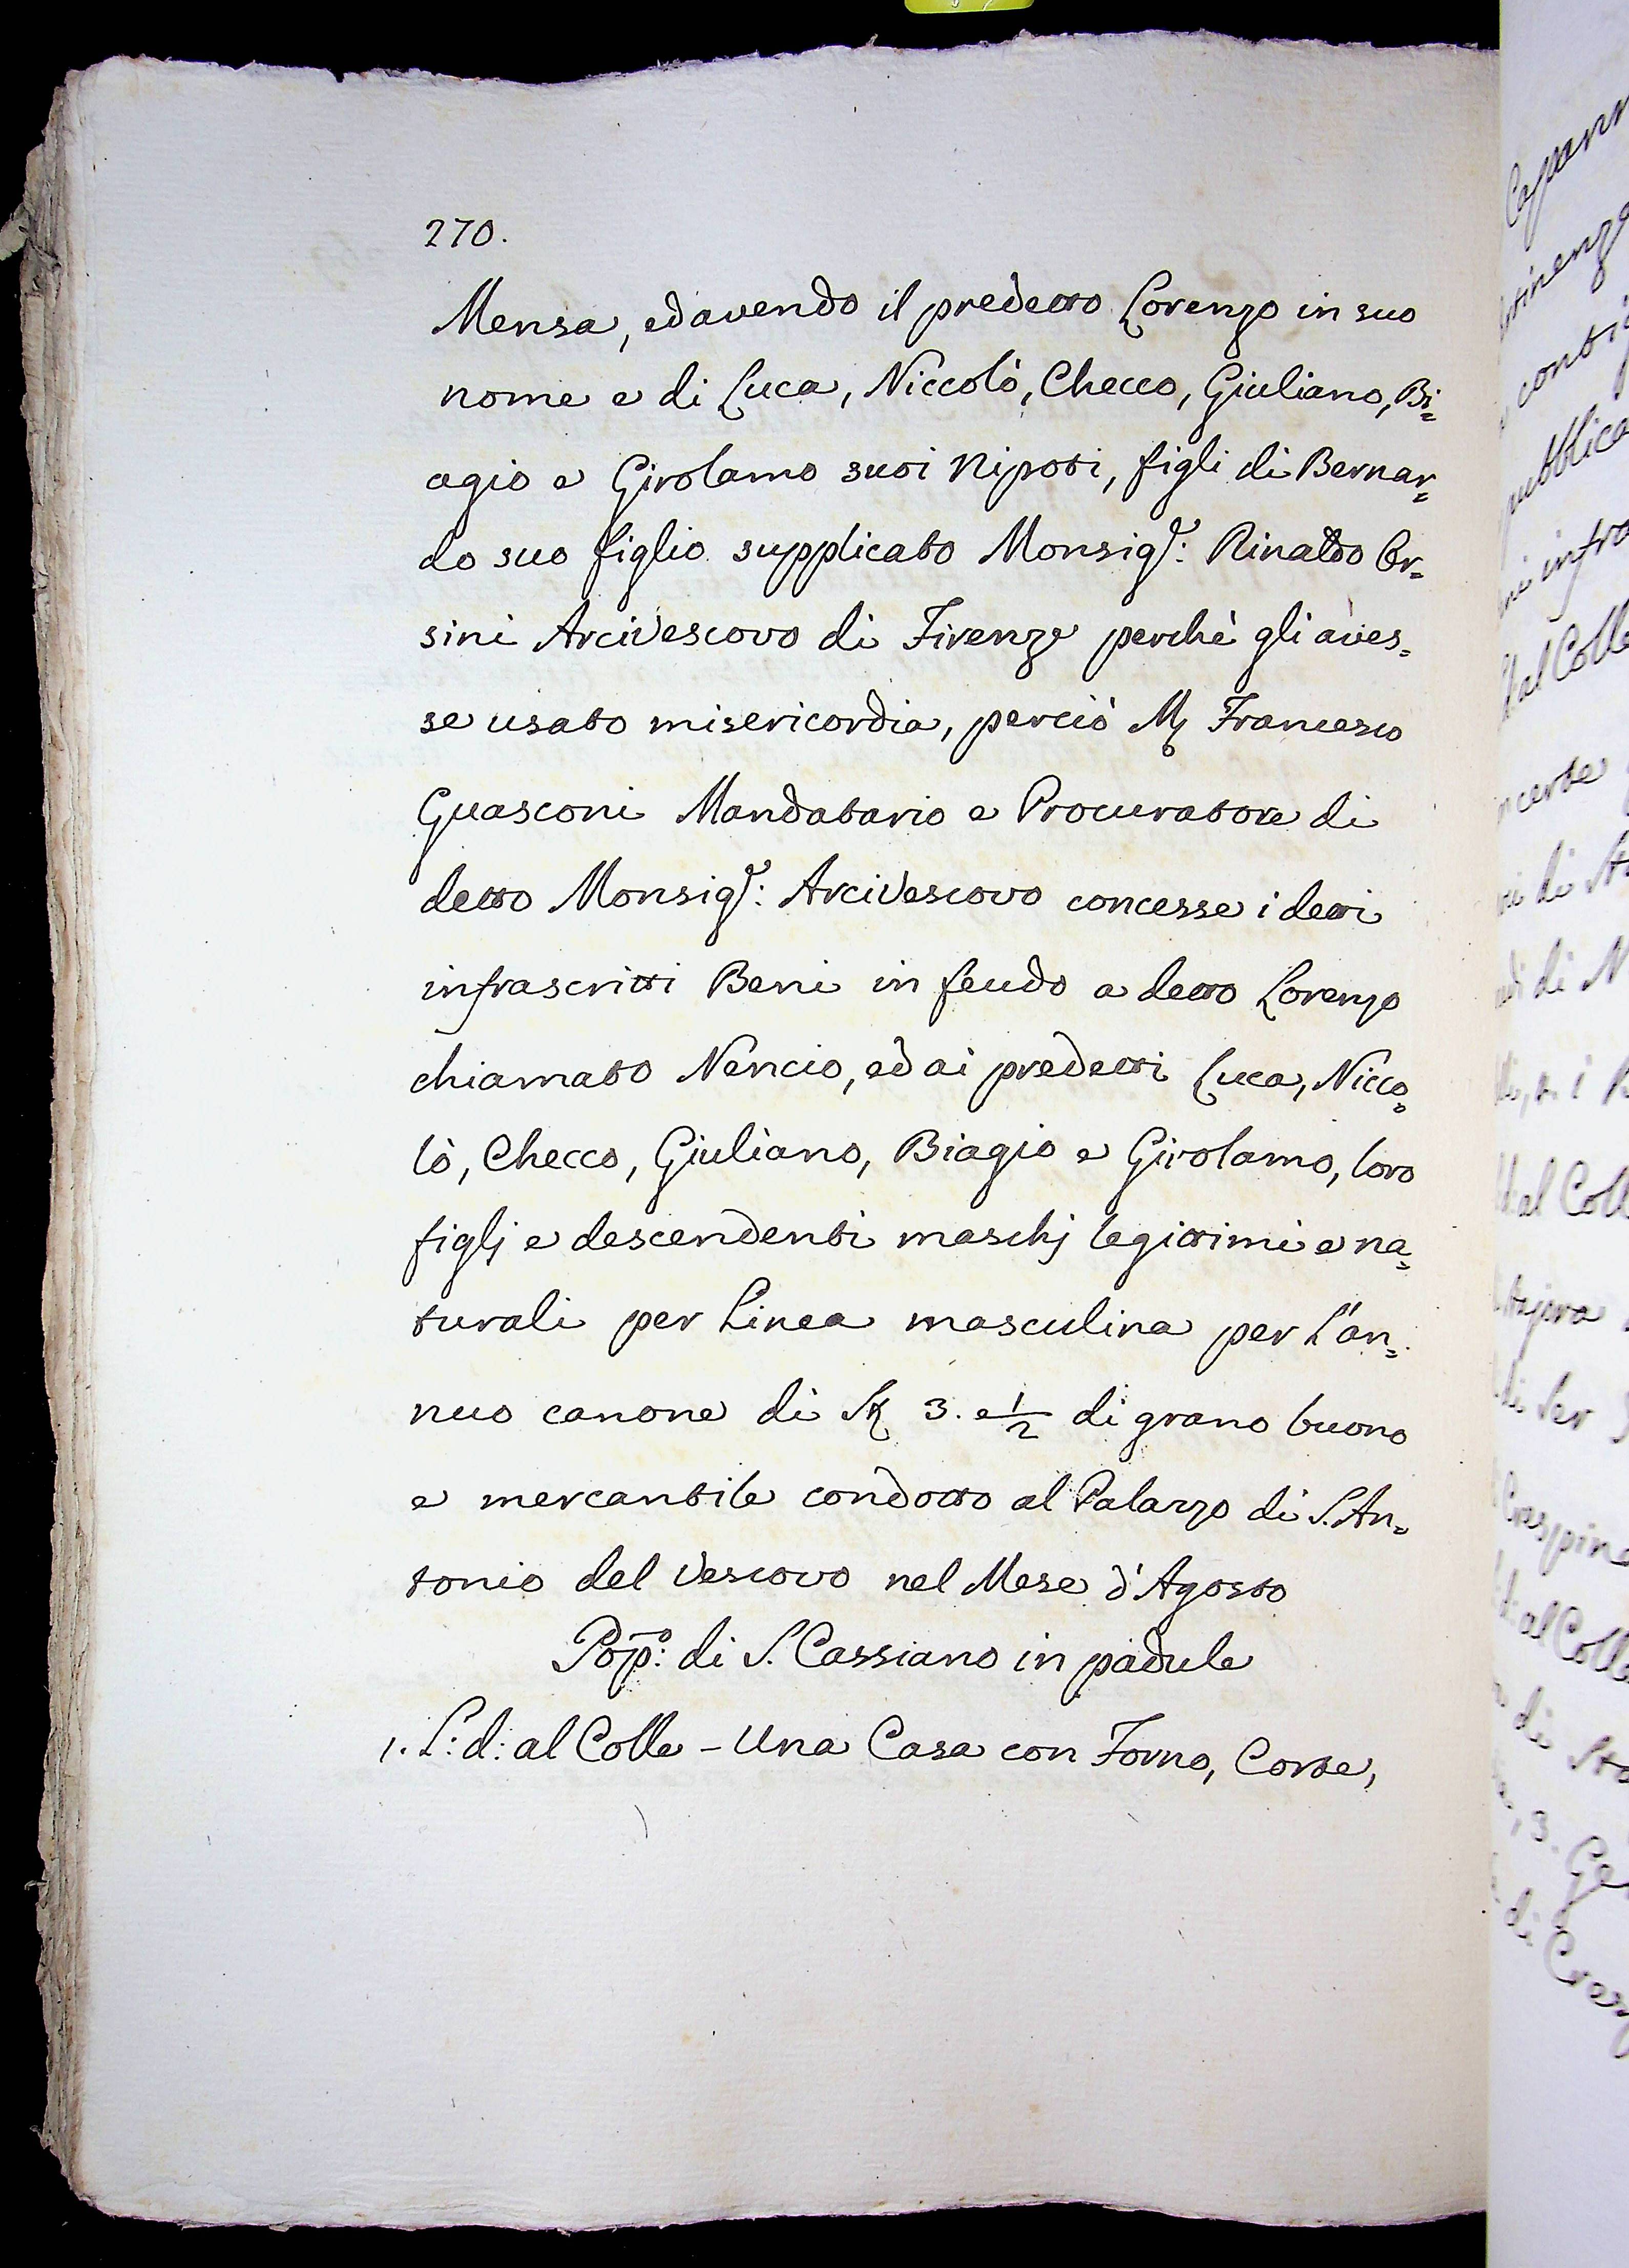 270.
Mensa, ed avendo il predetto Lorenzo in suo
nome e di Luca, Niccolò, Checco, Giuliano, Bi=
agio e Girolamo suoi Nipoti, figli di Bernar=
do suo figlio supplicato Monsig.r: Rinaldo Or=
sini Arcivescovo di Firenze perchè gli aves=
se usato misericordia, perciò M. Francesco
Guasconi Mandatario e Procuratore di
detto Monsig.r: Arcivescovo concesse i detti
infrascritti Beni in feudo a detto Lorenzo
chiamato Nencio, ed ai predetti Luca, Nicco=
lò, Checco, Giuliano, Biagio e Girolamo, loro
figlj e descendenti maschj legittimi e na=
turali per Linea masculina per l'an=
nuo canone di St 3. e 1/2 di grano buono
e mercantile condotto al Palazzo di S. An=
tonio del Vescovo nel Mese d'Agosto
Pop.o: di S. Cassiano in padule
1. L: d: al Colle - Una Casa con Forno, Corte,